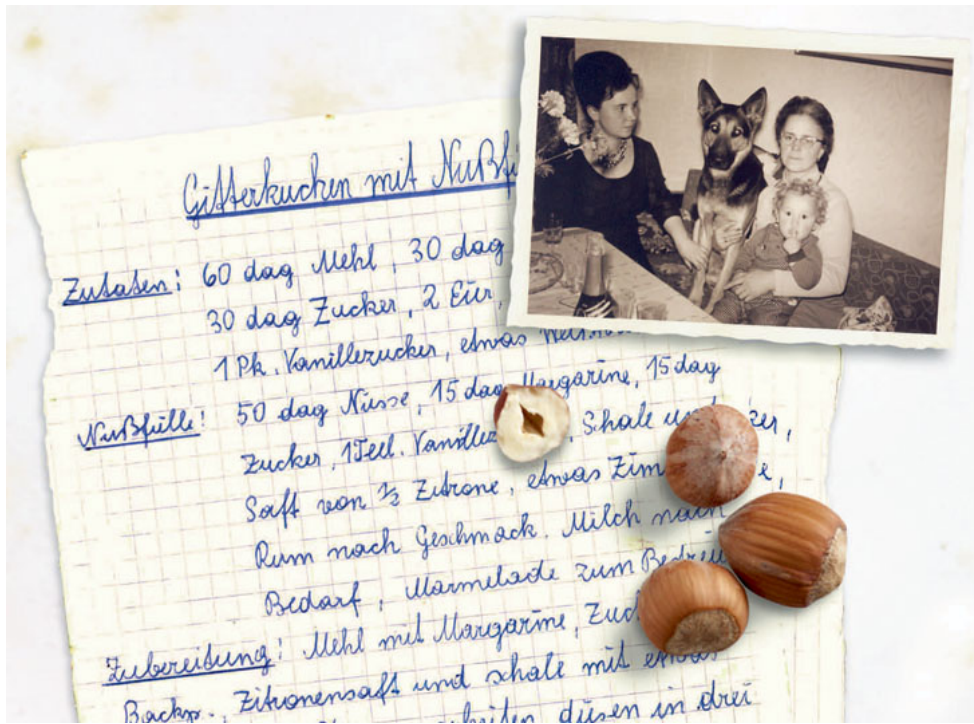 Gitterkuchen mit Nußfü
Zutaten: 60 dag Mehl, 30 dag
30 dag Zucker, 2 Eier,
1 Pk. Vanillezucker, etwas
Nußfülle: 50 dag Nüsse, 15 dag Margarine, 15 dag
Zucker, 1 Teel. Schale
Saft von ½ Zitrone, etwas
Rum nach Geschmack. Milch nach
Bedarf, Marmelade zum
Zubereitung: Mehl mit Margarine,
Backp., Zitronensaft und schale mit etwas
diesen in drei